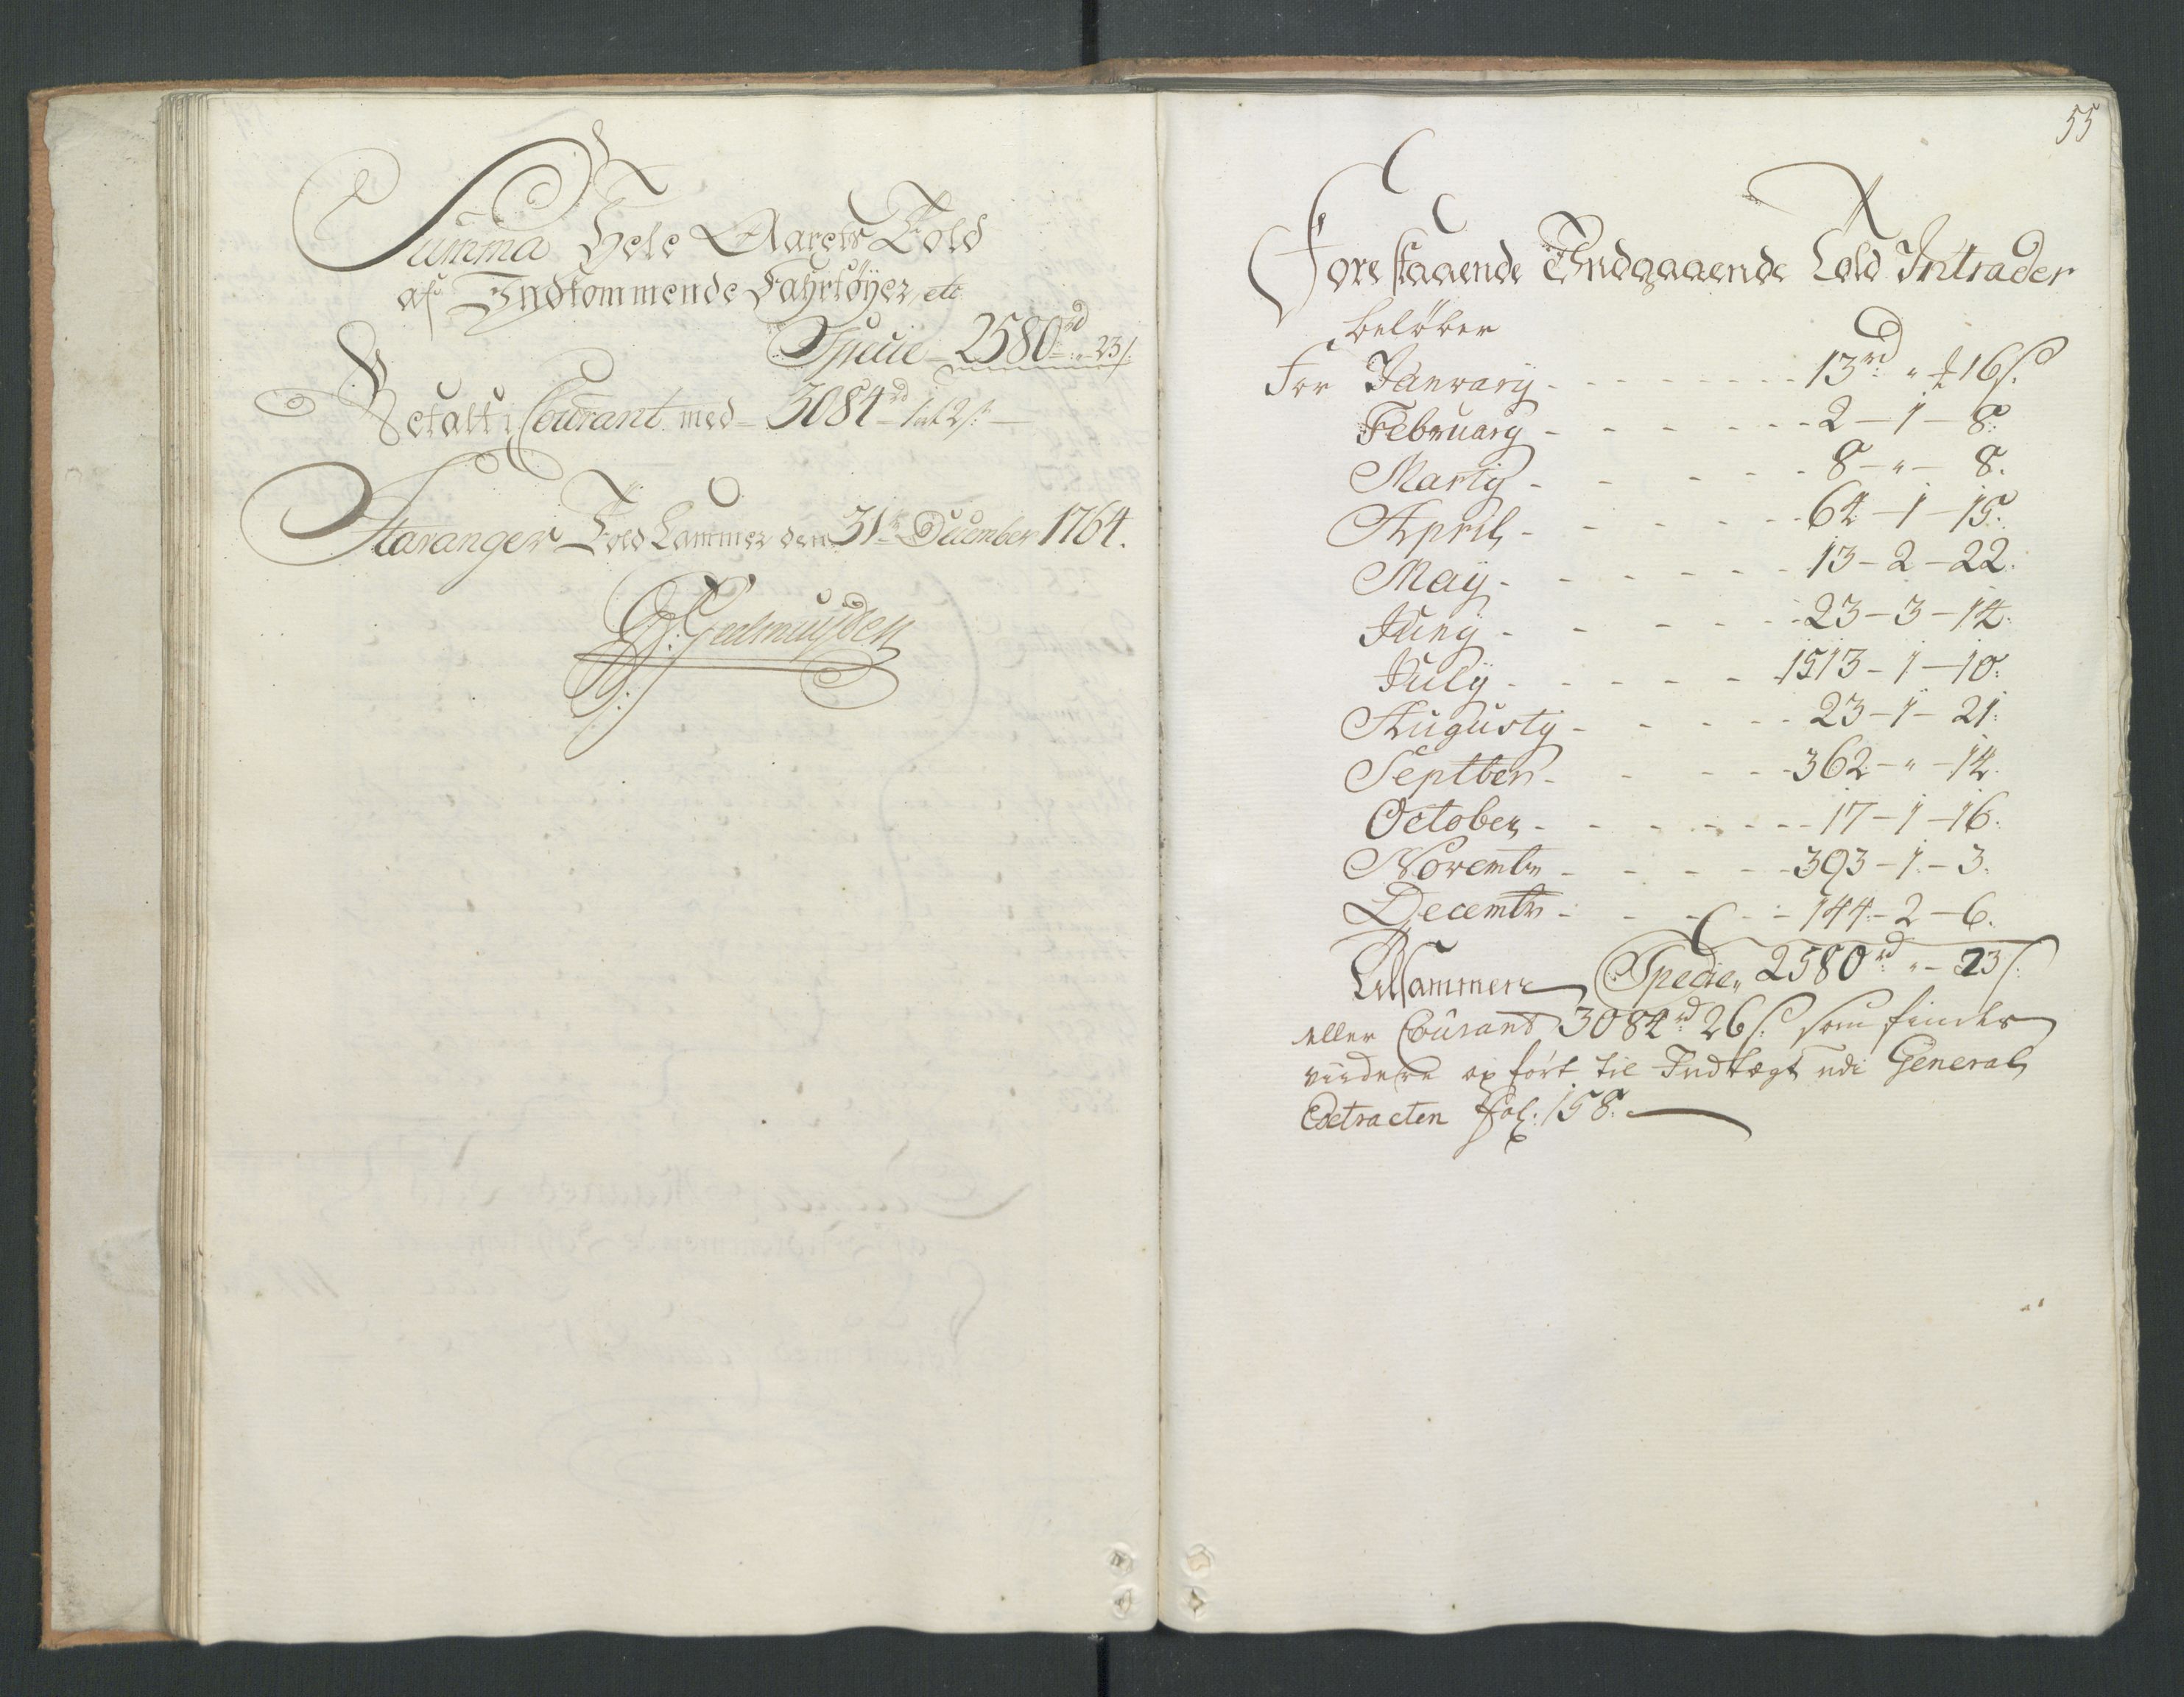 Summa Hele Aarets Told
af Indkommende Fahrtøyer, etc
Specie 2580 rd " 23 s:
Betalt i Courant med 3084 rd 1 ort 2 s:
Stavanger Told Cammer den 31te December 1764.
55
Forestaaende Indgaaende Told Intrader
beløber
For January - - - - - - - - 13 rd " ort 16 s.
February - - - - - - 2 - 1 - 8.
Martij - - - - - 8 - " - 8.
April - - - - - - 64 - 1 - 15.
May - - - - - - 13 - 2 - 22.
Junij - - - - - - 23 - 3 - 14.
July - - - - - 1513 - 1 - 10.
Augustij - - - - - 23 - 1 - 21.
Septber - - - - 362 - " - 14.
October - - - - - - - - 17 - 1 - 16.
Novembr - - - - - 393 - 1 - 3.
Decembr - - - - - 144 - 2 - 6.
Tilsammen Specie " 2580 rd " - 23 s.
eller Courant 3084 rd 26 s: som findes
viidere op ført til Indtægt udi General
Extracten Fol: 158.